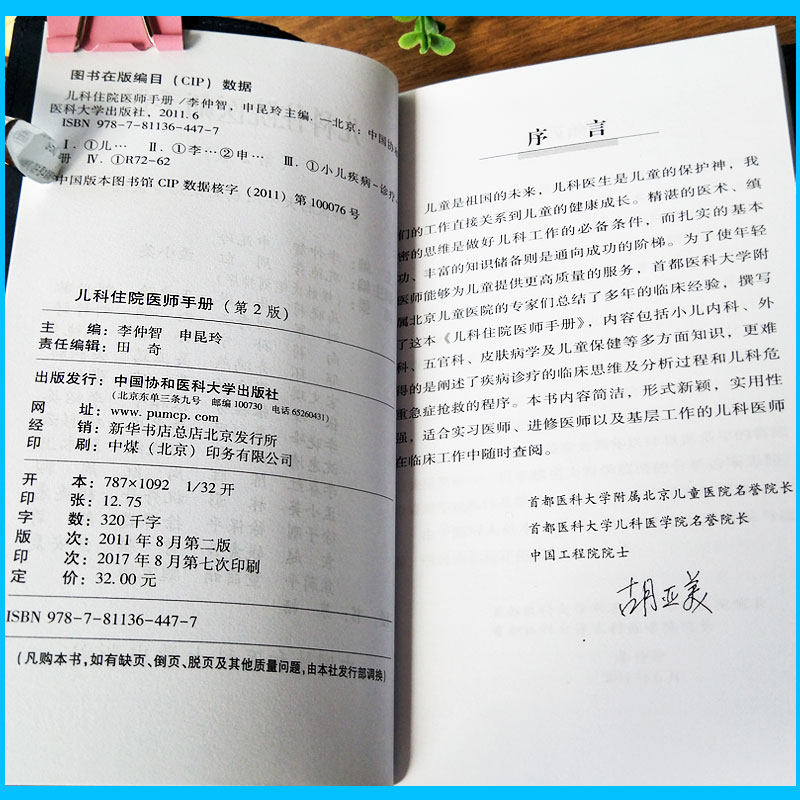 图书在版编目（CIP）数据
儿科住院医师手册/李仲智，申昆玲主编.—北京：中国协和
医科大学出版社，2011.6
ISBN 978-7-81136-447-7
Ⅰ.①儿… Ⅱ.①李…②申… Ⅲ.①小儿疾病-诊疗
册 Ⅳ.①R72-62
中国版本图书馆 CIP 数据核字（2011）第 100076 号
儿科住院医师手册（第 2 版）
主 编：李仲智 申昆玲
责任编辑：田 奇
出版发行：中国协和医科大学出版社
（北京东单三条九号 邮编 100730 电话 65260431）
网 址：www.pumcp.com
经 销：新华书店总店北京发行所
印 刷：中煤（北京）印务有限公司
开 本：787×1092 1/32 开
印 张：12.75
字 数：320 千字
版 次：2011 年 8 月第二版
印 次：2017 年 8 月第七次印刷
定 价：32.00 元
ISBN 978-7-81136-447-7
（凡购本书，如有缺页、倒页、脱页及其他质量问题，由本社发行部调换）
序 言
儿童是祖国的未来，儿科医生是儿童的保护神，我
们的工作直接关系到儿童的健康成长。精湛的医术、缜
密的思维是做好儿科工作的必备条件，而扎实的基本
功、丰富的知识储备则是通向成功的阶梯。为了使年轻
医师能够为儿童提供更高质量的服务，首都医科大学附
属北京儿童医院的专家们总结了多年的临床经验，撰写
了这本《儿科住院医师手册》，内容包括小儿内科、外
科、五官科、皮肤病学及儿童保健等多方面知识，更难
得的是阐述了疾病诊疗的临床思维及分析过程和儿科危
重急症抢救的程序。本书内容简洁，形式新颖，实用性
强，适合实习医师、进修医师以及基层工作的儿科医师
在临床工作中随时查阅。
首都医科大学附属北京儿童医院名誉院长
首都医科大学儿科医学院名誉院长
中国工程院院士
胡亚美